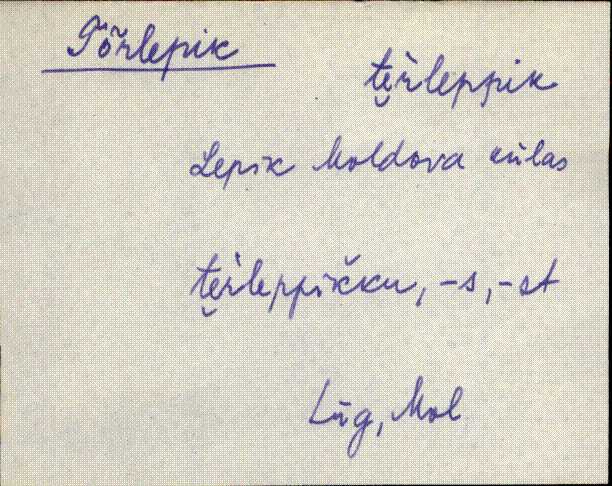 Tõrlepik
te̮rleppik
Lepik Moldova külas
te̮rleppikku, -s, -st
Lüg, Mol